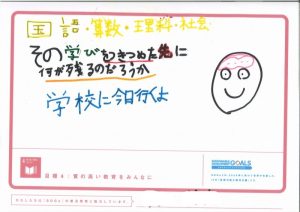 国語・算数・理科・社会
その学びをつきつめた先に
何が残るのだろうか
学校に今日行くよ
目標4:質の高い教育をみんなに
GOALS